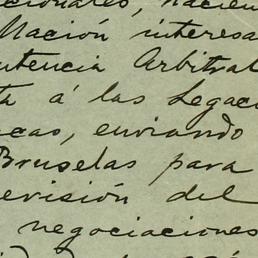 cionales, hacien
Nación interesa
ntencia Arbitral
ta á las Legaci
icas, enviando
Bruselas para
evisión del
negociaciones